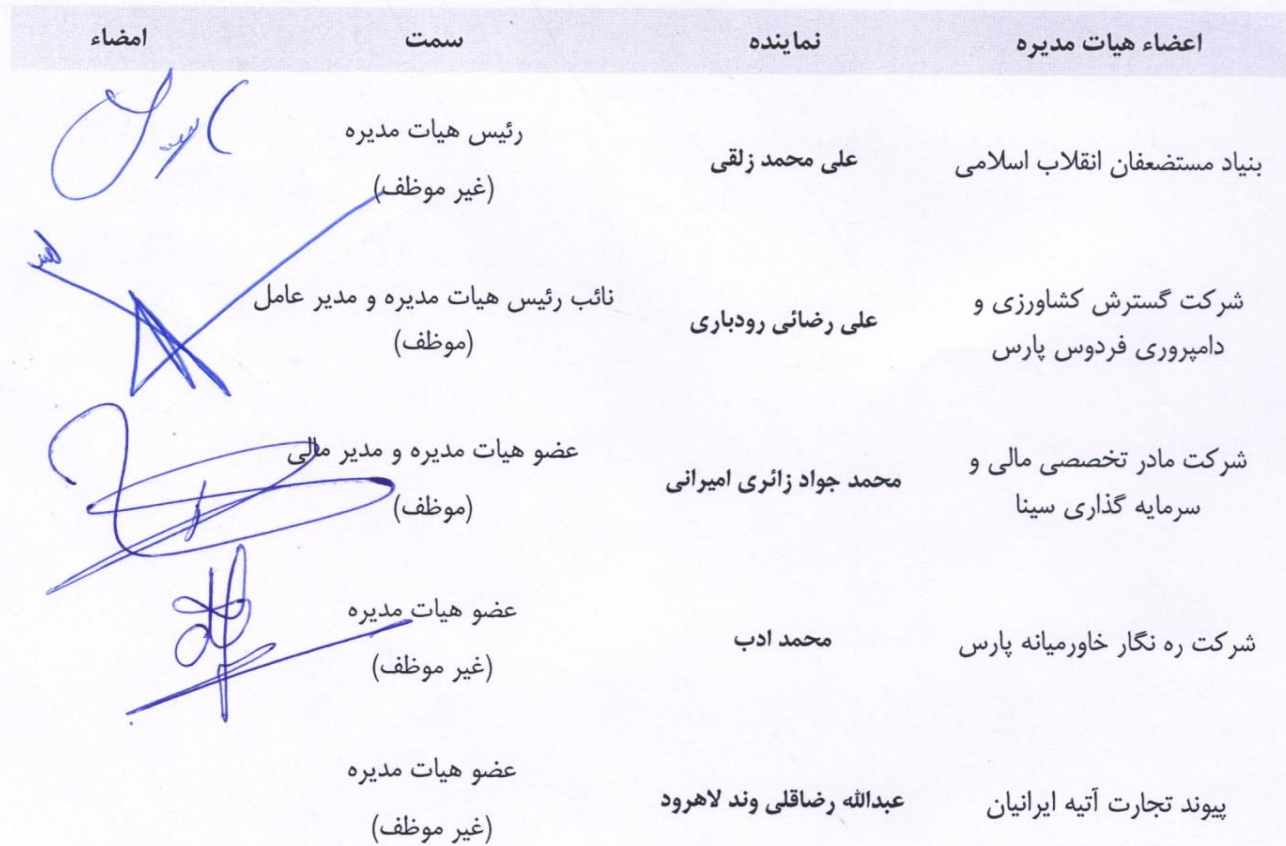 اعضاء هیات مدیره نماینده سمت امضاء
بنیاد مستضعفان انقلاب اسلامی علی محمد زلقی رئیس هیات مدیره
(غیر موظف)
شرکت گسترش کشاورزی و علی رضائی رودباری نائب رئیس هیات مدیره و مدیر عامل
دامپروری فردوس پارس (موظف)
شرکت مادر تخصصی مالی و محمد جواد زائری امیرانی عضو هیات مدیره و مدیر مالی
سرمایه گذاری سینا (موظف)
شرکت ره نگار خاورمیانه پارس محمد ادب عضو هیات مدیره
(غیر موظف)
پیوند تجارت آتیه ایرانیان عبدالله رضاقلی وند لاهرود عضو هیات مدیره
(غیر موظف)